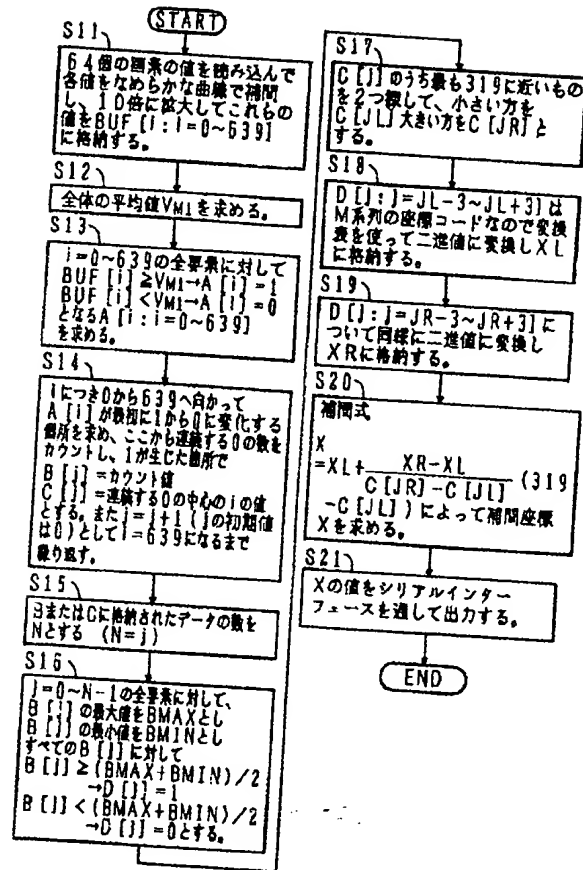 START
S11
64個の画素の値を読み込んで
各値をなめらかな曲線で補間
し、10倍に拡大してこれらの
値をBUF[i:i=0~639]
に格納する。
S12
全体の平均値VM1を求める。
S13
i=0~639の全要素に対して
BUF[i]≧VM1→A[i]=1
BUF[i]<VM1→A[i]=0
となるA[i:i=0~639]
を求める。
S14
iにつき0から639へ向かって
A[i]が最初に1から0に変化する
個所を求め、ここから連続する0の数を
カウントし、1が生じた個所で
B[j]=カウント値
C[j]=連続する0の中心のiの値
とする。またj=j+1(jの初期値
は0)としてi=639になるまで
繰り返す。
S15
BまたはCに格納されたデータの数を
Nとする (N=j)
S16
j=0~N-1の全要素に対して、
B[j]の最大値をBMAXとし
B[j]の最小値をBMINとし
すべてのB[j]に対して
B[j]≧(BMAX+BMIN)/2
→D[j]=1
B[j]<(BMAX+BMIN)/2
→D[j]=0とする。
S17
C[j]のうち最も319に近いもの
を2つ探して、小さい方を
C[JL]大きい方をC[JR]と
する。
S18
D[j:j=JL-3~JL+3]は
M系列の座標コードなので変換
表を使って二進値に変換しXL
に格納する。
S19
D[j:j=JR-3~JR+3]に
ついて同様に二進値に変換し
XRに格納する。
S20
補間式
X
=XL+ XR-XL (319
C[JR]-C[JL]
-C[JL])によって補間座標
Xを求める。
S21
Xの値をシリアルインター
フェースを通して出力する。
END